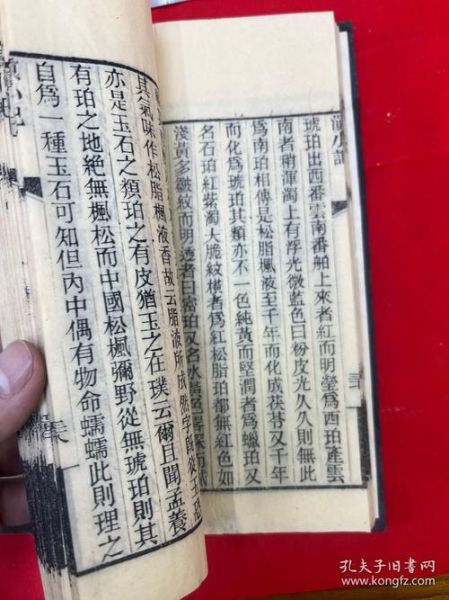 滇小記
琥珀出西番雲南番舶上來者紅而明瑩爲西珀產雲
南者稍渾濁上有浮光微藍色曰粉皮光久久則無此
爲南珀相傳是松脂楓液至千年而化成茯苓又千年
而化爲琥珀其類亦不一色純黃而堅潤者爲蠟珀又
名石珀紅紫濁大脆紋橫者爲紅松脂珀都無紅色如
淺黃多皴紋而明透者曰密珀又名水
其氣味作松脂楓液香故云脂液所成然字旣從玉
亦是玉石之類珀之有皮猶玉之在璞云爾且聞孟養
有珀之地絶無楓松而中國松楓彌野從無琥珀則其
自爲一種玉石可知但內中偶有物命蠕蠕此則理之
孔夫子旧书网
www.kongfz.com